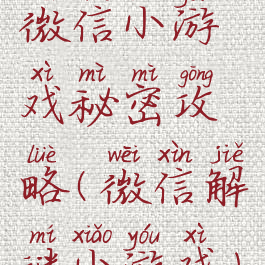 微信小游
xì mì mì gōng
戏秘密攻
lüè wēi xìn jiě
略(微信解
mí xiǎo yóu xì
谜小游戏)